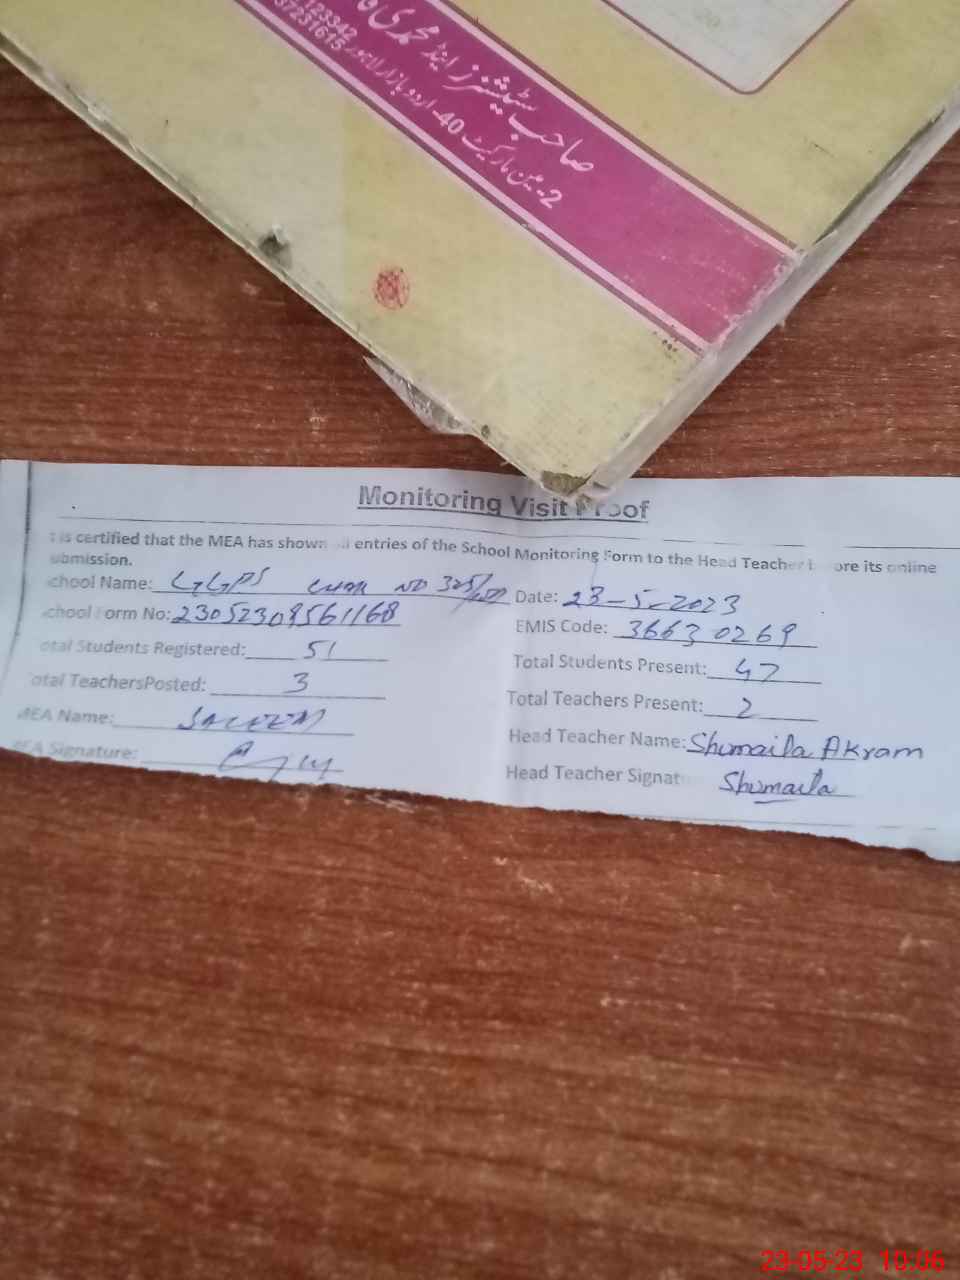 صاحب سٹیشنرز اینڈ محمدی
2- مین مارکیٹ 40- اردو بازار لاہور
37231615
Monitoring Visit Proof
is certified that the MEA has shown all entries of the School Monitoring Form to the Head Teacher before its online
ubmission.
chool Name: GGPS CHAK NO 325/ Date: 23-5-2023
chool Form No: 23052309561168 EMIS Code: 36630269
otal Students Registered: 51 Total Students Present: 47
otal TeachersPosted: 3 Total Teachers Present: 2
MEA Name: SALEEM Head Teacher Name: Shumaila Akram
MEA Signature: Head Teacher Signat Shumaila
23-05-23 10:06